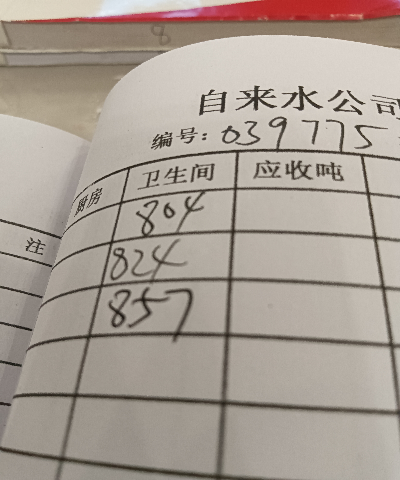 8
自来水公司
编号：039775
厨房 卫生间 应收吨
804
注
824
857